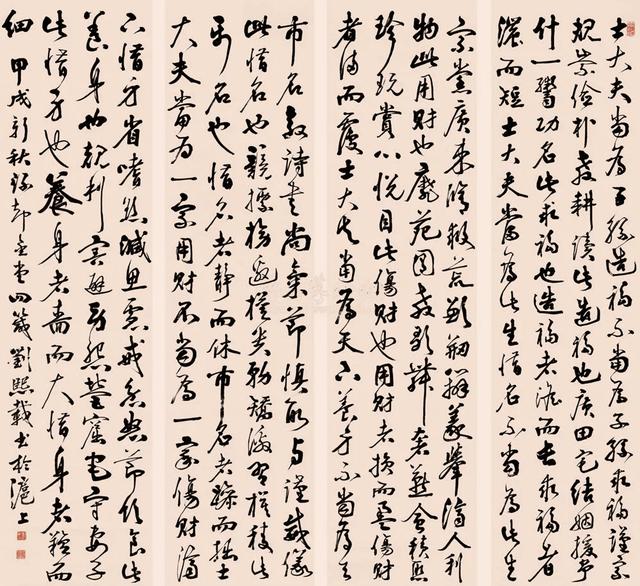 士大夫當為子孫造福不當為子孫求福謹家
規崇儉朴教耕讀此造福也廣田宅結姻援爭
什一鬻功名此求福也造福者澹而長求福者
濃而短士大夫當為此生惜名不當為此生
宗黨廣束脩救荒歉助義舉濟人利
物此用財也靡苑囿教歌舞奢燕會積
珍玩賞心悅目此傷財也用財者損而盈傷財
者滿而覆士大夫當為天下養身不當為天
市名敦詩書尚氣節慎取與謹威儀
此惜名也競標榜邀權貴務矯激習模稜此
市名也惜名者靜而休市名者躁而拙士
大夫當為一家用財不當為一家傷財濟
下惜身省嗜慾減思慮戒忿怒節飲食此
養身也規利害避勞怨營窟宅守妻子
此惜身也養身者嗇而大惜身者羶而
細 甲戌新秋錄却金堂四箴劉熙載書於滬上